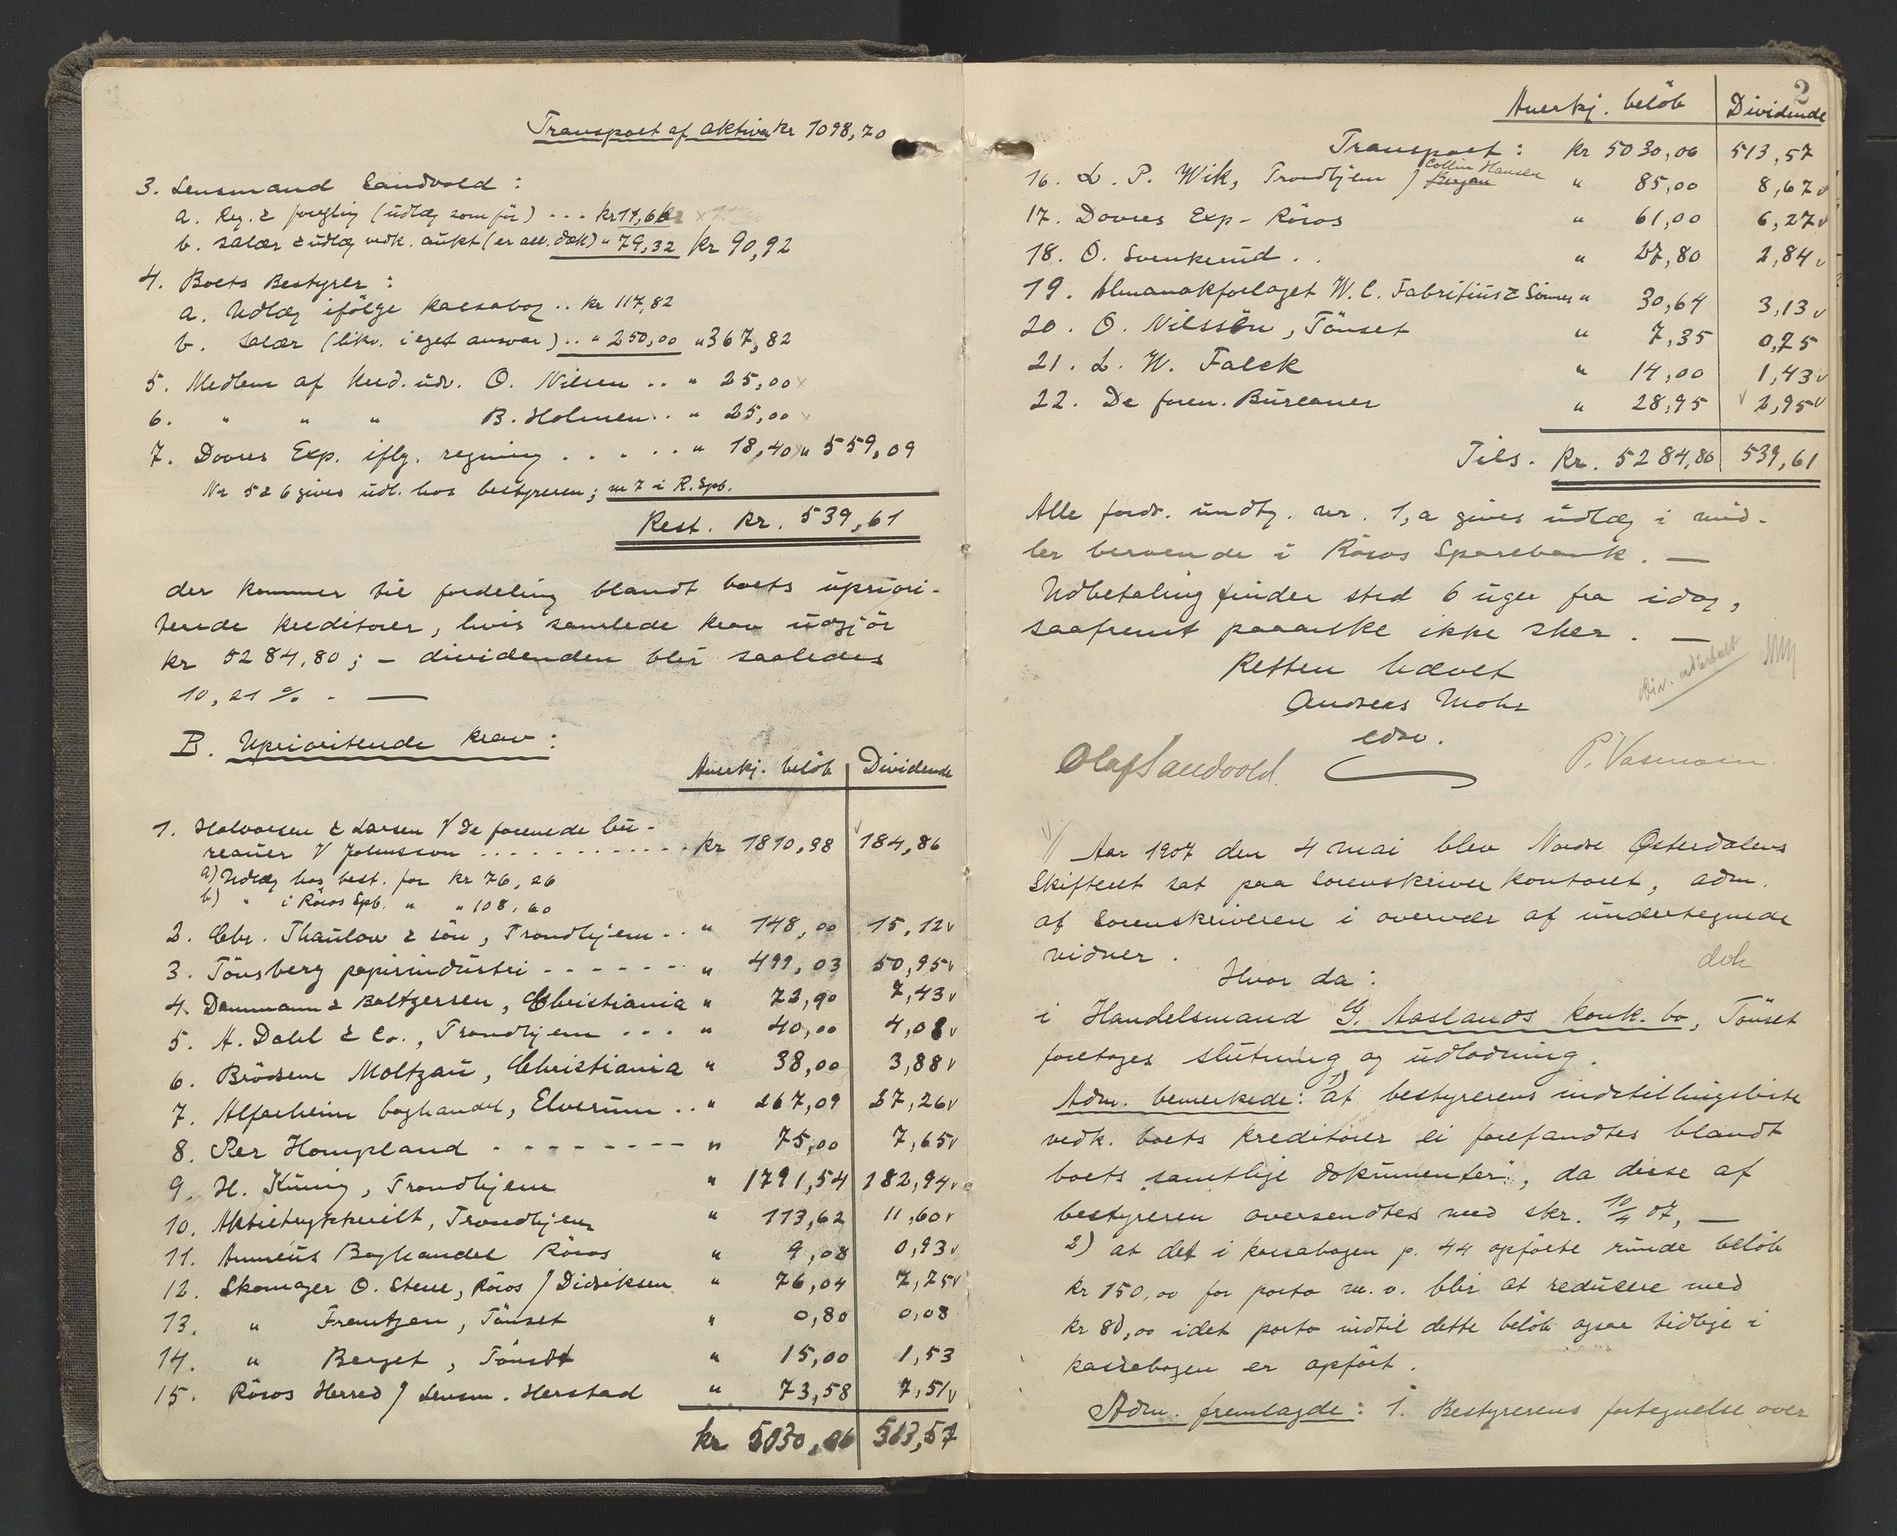 Transport af aktiva kr 1098,70
3. Lensmand Sandvold :
a. Reg. & forsgling (udlæg som før) ... kr 11,60
b. salær & udlæg vedk. aukt (er all. dæk) " 79,32 kr 90,92
4. Boets Bestyrer :
a. Udlæg ifölge kassabog .. kr 117,82
b. salær (likv. i eget ansvar) .. " 250,00 " 367,82
5. Medlem af kred. udv. O. Nilsen .. " 25,00
6. " " " B. Holmen .. " 25,00
7. Dovres Exp. iflg. regning . . . . . " 18,40 " 559,09
Nr 5 & 6 gives udl. hos bestyreren; nr 7 i R. Spb.
Rest. kr. 539,61
der kommer til fordeling blandt boets upriori-
terede kreditorer, hvis samlede krav udgjör
kr 5284,80; - dividenden blir saaledes
10,21 % . —
B. Uprioriterede krav :
Anerkj. belöb Dividende
1. Halvorsen & Larsen v/ de forenede bu-
reauer v/ Johnsson . . . . . . . . . . . kr 1810,98 184,86
a) Udlæg hos best. for kr 76,26
b) " i Röros Spb. " " 108,60
2. Chr. Thaulow & sön, Trondhjem .. " 148,00 15,12
3. Tönsberg papirindustri - - - - - - " 499,03 50,95
4. Dammann & Baltzersen, Christiania " 72,90 7,43
5. A. Dahl & Co., Trondhjem - - - " 40,00 4,08
6. Brödrene Moltzau, Christiania " 38,00 3,88
7. Alfarheim boghandel, Elverum .. " 267,09 27,26
8. Per Hompland - - - - - - - - " 75,00 7,65
9. H. König, Trondhjem " 1791,54 182,94
10. Aktietrykkeriet, Trondhjem " 113,62 11,60
11. Amnéus Boghandel Röros " 9,08 0,93
12. Skomager O. Stene, Röros / Didriksen " 76,04 7,75
13. " Frentzen, Tönset " 0,80 0,08
14. " Berget, Tönset " 15,00 1,53
15. Röros Herred / Lensm. Herstad " 73,58 7,51
kr 5030,06 513,57
2
Anerkj. belöb Dividende
Transport : kr 5030,06 513,57
Collin Hansen
16. L. P. Wik, Trondhjem / Bergan " 85,00 8,67
17. Dovres Exp - Röros " 61,00 6,27
18. O. Svenkerud . . " 27,80 2,84
19. Almanakforlaget W. C. Fabritius & Sönner " 30,64 3,13
20. O. Nilssön, Tönset " 7,35 0,75
21. L. W. Falck " 14,00 1,43
22. De foren. Büreauer " 28,95 2,95
Tils. kr. 5284,80 539,61
Alle fordr. undtg. nr. 1,a gives udlæg i mid-
ler beroende i Röros Sparebank. —
Udbetaling finder sted 6 uger fra idag,
saafremt paaanke ikke sker. —
Retten hævet
Andreas Mohr
edsv.
Div. udbetalt
Olaf Sandvold. P. Vasmoen.
Aar 1907 den 4 mai blev Nordre Østerdalens
Skifteret sat paa sorenskriverkontoret, adm.
af sorenskriveren i overvær af undertegnede
vidner.
dok
Hvor da :
i Handelsmand G. Aaslands konk. bo, Tönset
foretoges slutning og udlodning.
Adm. bemerkede: 1) at bestyrerens indstillingsliste
vedk. boets kreditorer ei forefandtes blandt
boets "samtlige dokumenter", da disse af
bestyreren oversendtes med skr. 10/4 07, —
2) at det i kassabogen p. 44 opförte runde belöb
kr 150,00 for porto m. v. blir at reducere med
kr 80,00 idet porto indtil dette belöb ogsaa tidlige i
kassabogen er opfört.
Adm. fremlagde: 1. Bestyrerens fortegnelse over